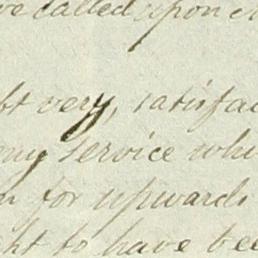 called upon
very, satisfac
my service whi
for upwards
ht to have bee